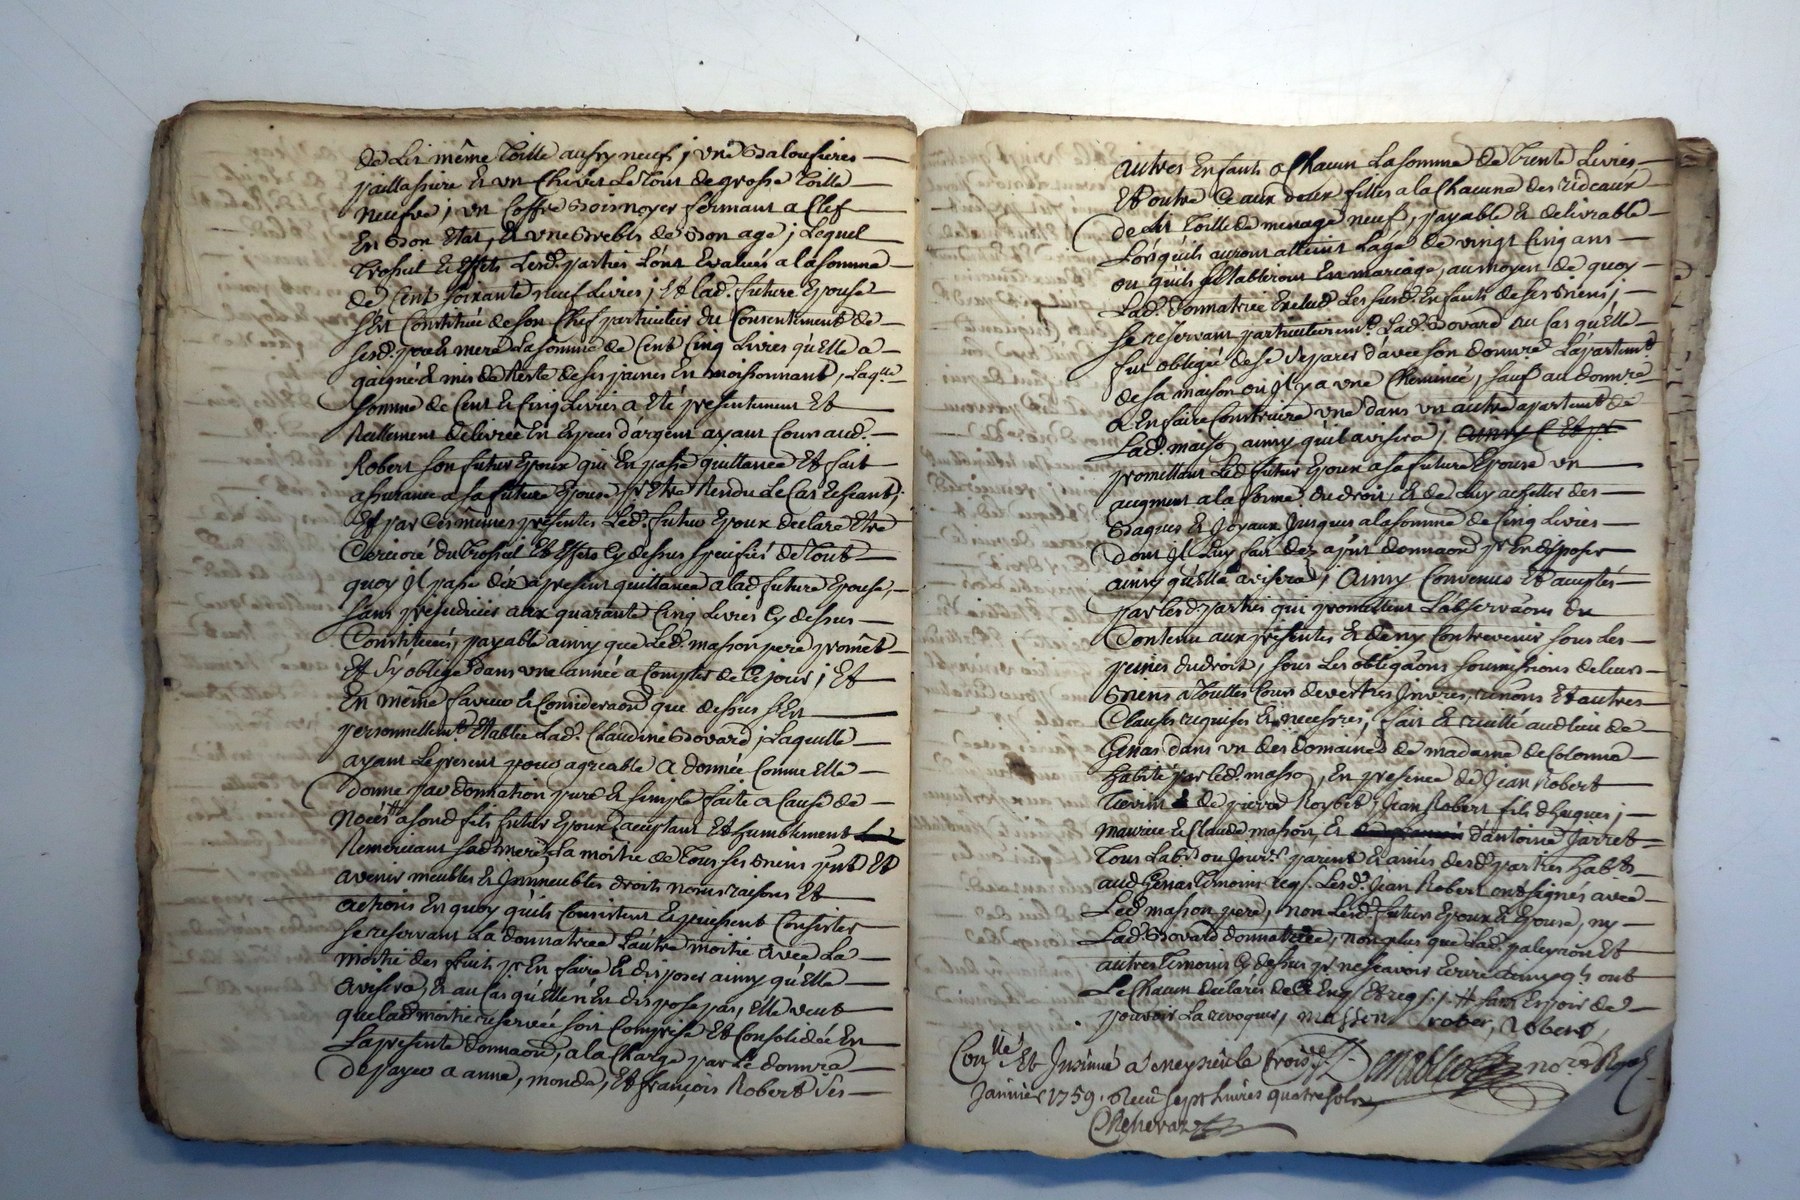 de Lit même Toille aussy neuf; une Balousiere
paillassiere Et un Chevet Le Tout de grosse Toille
neufve; un Coffre Bois noyer fermant a Clef
En Bon Etat, Et une Brebis de Bon age; Lequel
Trossel Et Effets Lesd. parties L'ont Evalués a la somme
de Cent soixante neuf Livres; Et lad. future Epouse
s'Est Constituée de son Chef particulier du Consentement de
sesd. pere & mere La somme de Cent Cinq Livres qu'Elle a
gaigné & mis de Reste de ses peines En moissonnant, Laqlle
somme de Cent Et Cinq Livres a Eté presentement Et
Reellement delivrée En Espece d'argent ayant Cour aud.
Robert son futur Epoux qui En passe quittance Et fait
assurance a sa future Epouse pr Etre Rendu Le Cas Echeant;
Et par Ces mêmes presentes Led. futur Epoux declare Etre
Chargé du Trossel Et Effets Cy dessus specifiés de Tout
quoy Il passe déz a present quittance a lad. future Epouse,
sans prejudices aux quarante Cinq Livres Cy dessus
Constituées, payable ainsy que Led. masson pere promêt
Et S'y oblige dans une année a Compter de Ce jour; Et
En même faveur & Consideraon que dessus s'Est
personnellemt. Etablie Lad. Claudine Bovard; Laquelle
ayant Le present pour agreable a donnée Comme Elle
donne par donnation pure & simple faite a Cause de
Noces # a sond. fils futur Epoux acceptant Et humblement
Remerciant sad. mere, La moitié de Tous ses Biens pnts Et
avenir meubles & Immeubles droits noms raisons Et
actions En quoy qu'ils Consistent & puissent Consister
se reservant La donnatrice L'autre moitié avec La
moitié des fruits pr En faire & disposer ainsy qu'Elle
avisera, Et au Cas qu'Elle n'En dispose pas, Elle veut
que lad. moitié reservée soit Comprise Et Consolidée En
La presente donnaon, a la Charge par Le donnre
de payer a anne, monda, Et françois Robert ses
autres Enfants a Chacun La somme de Trente Livres
Et outre Ce aux deux filles a la Chacune des rideaux
de Lit Toille de menage neuf, payable & delivrable
Lorsqu'ils auront atteint L'age de vingt Cinq ans
ou qu'ils s'Etabliront En mariage, au moyen de quoy
Lad. donnatrice Exclud Les susd. Enfants de ses Biens;
se reservant particulieremt. Lad. Bovard au Cas qu'Elle
fut obligée de se separer d'avec son donnre L'apartemt.
de sa maison ou Il y a une Cheminée, sauf au donnre
a En faire Construire une dans un autre apartemt de
Lad. maison ainsy qu'il avisera;
promettant Led. futur Epoux a sa future Epouse un
augment a la forme du droit, Et de Luy achetter des
Bagues & Joyaux Jusques a la somme de Cinq Livres
dont Il Luy fait dez apnt donnaon pr En disposer
ainsy qu'Elle avisera; Ainsy Convenus Et acceptés
par Lesd. parties qui promettent L'observaons du
Contenu aux presentes & de n'y Contrevenir sous Les
peines du droit, sous Les obligaons soumissions de leurs
Biens a Touttes Cours
Clauses requises & necessres; fait & recitté aud. lieu de
Genas dans un des domaines de madame de Colonne
habité par led. masson, En presence de Jean Robert
de pierre Roybet, Jean Robert fils d'hugues,
maurice & Claude masson, Et d'antoine Jarret
Tous Labrs ou Jourrs parents & amis desd. parties habts
aud. Genas Temoins reqs. Lesd. Jean Robert ont signés avec
Led. masson pere, non Lesd. futurs Epoux & Epouse, ny
Lad. Bovard donnatrice, non plus que Lad. Et
autres Temoins Cy dessus pr ne sçavoir Ecrire ainsy qls ont
Le Chacun declarés de Ce Enqs Et reqs.; # sans Espoir de
pouvoir La revoquer, masson, rober, robert,
Conllé Et Insinué a meyzieu le trois no.re Royal
Janvier 1759. Receu sept Livres quatre sols